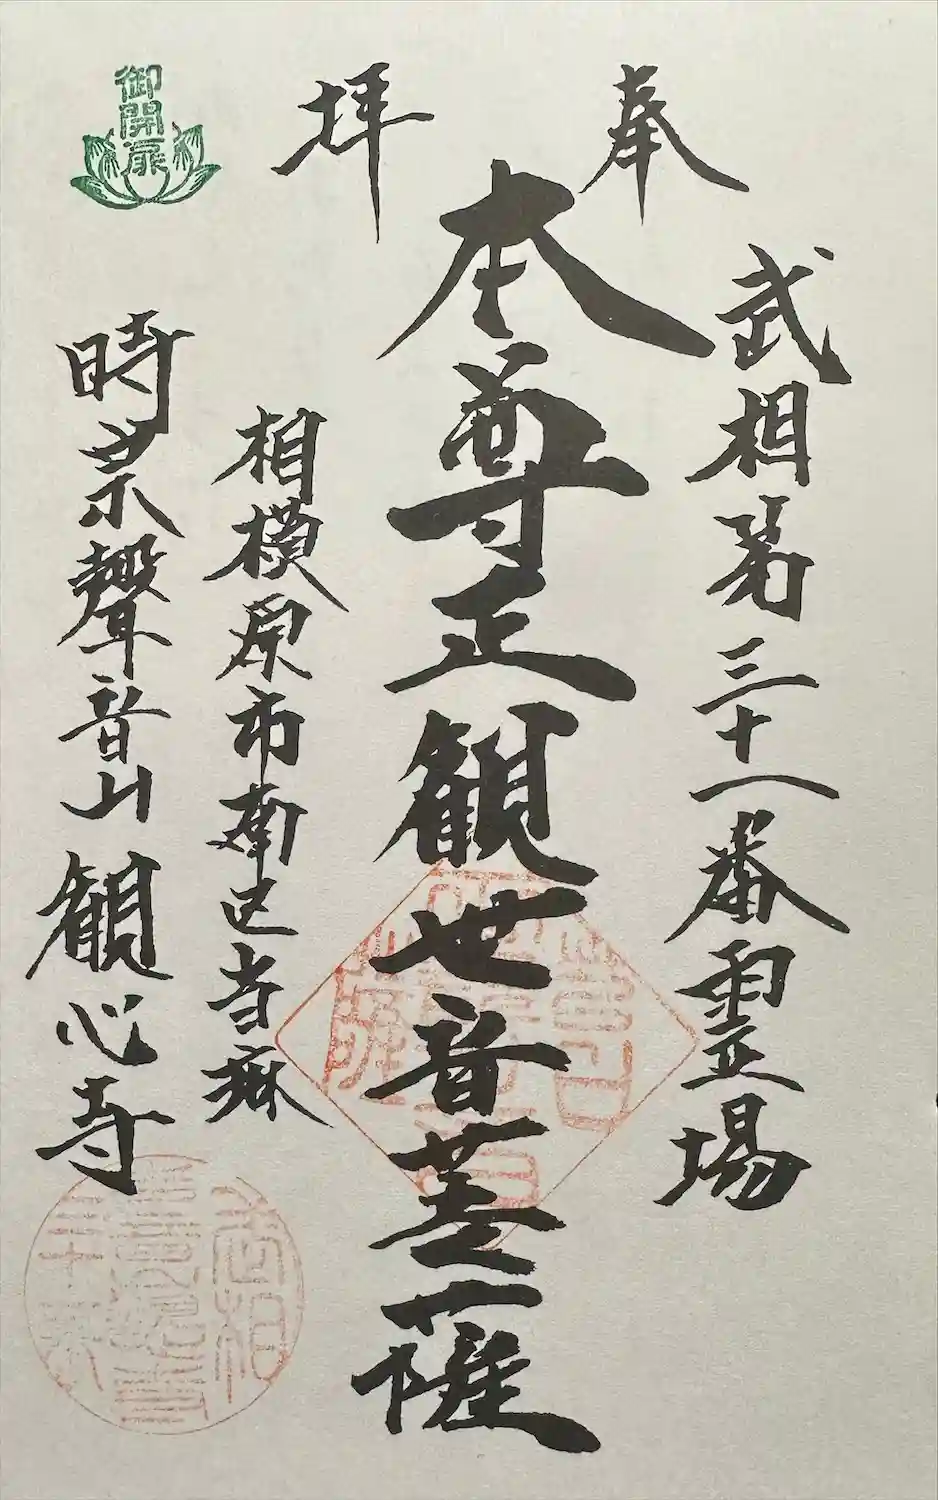 奉拝
武相第三十一番霊場
本尊正観世音菩薩
相模原市南区当麻
時宗聲音山観心寺
御開扉
武相